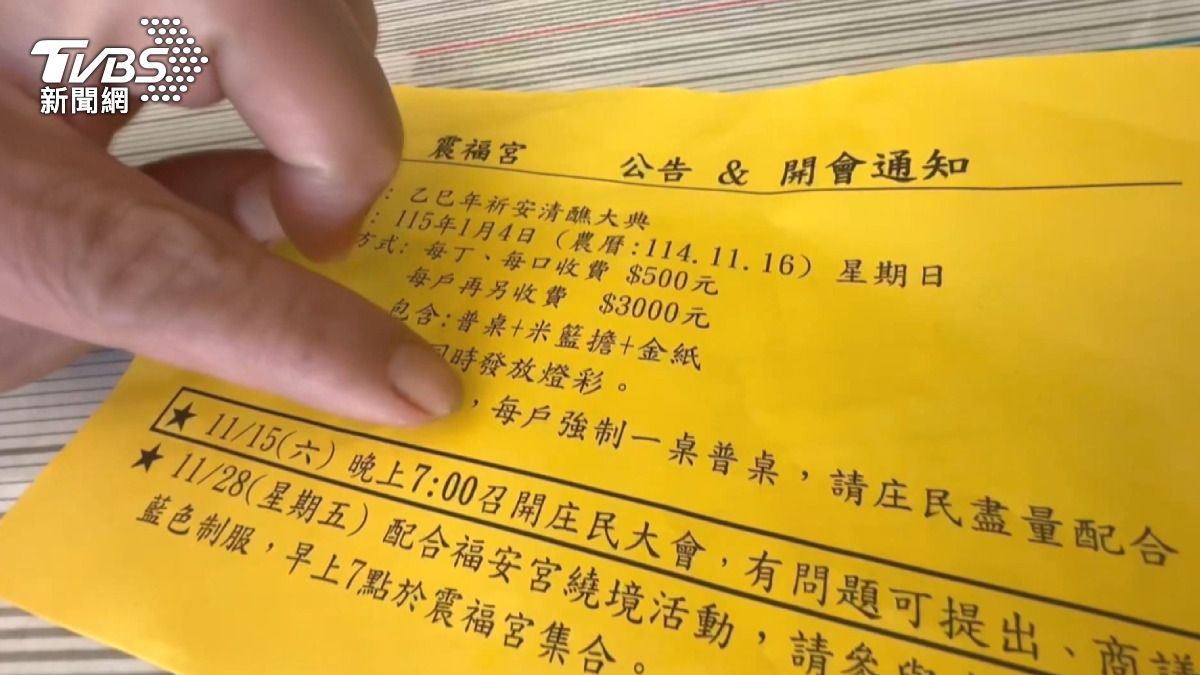 TVBS
新聞網
震福宮 公告 & 開會通知
: 乙巳年祈安清醮大典
: 115年1月4日 (農曆:114.11.16) 星期日
方式: 每丁、每口收費 $500元
每戶再另收費 $3000元
包含:普桌+米籃擔+金紙
同時發放燈彩。
,每戶強制一桌普桌,請庄民盡量配合
★ 11/15(六) 晚上7:00召開庄民大會,有問題可提出、商議
★ 11/28(星期五) 配合福安宮繞境活動,請參與
藍色制服,早上7點於震福宮集合。